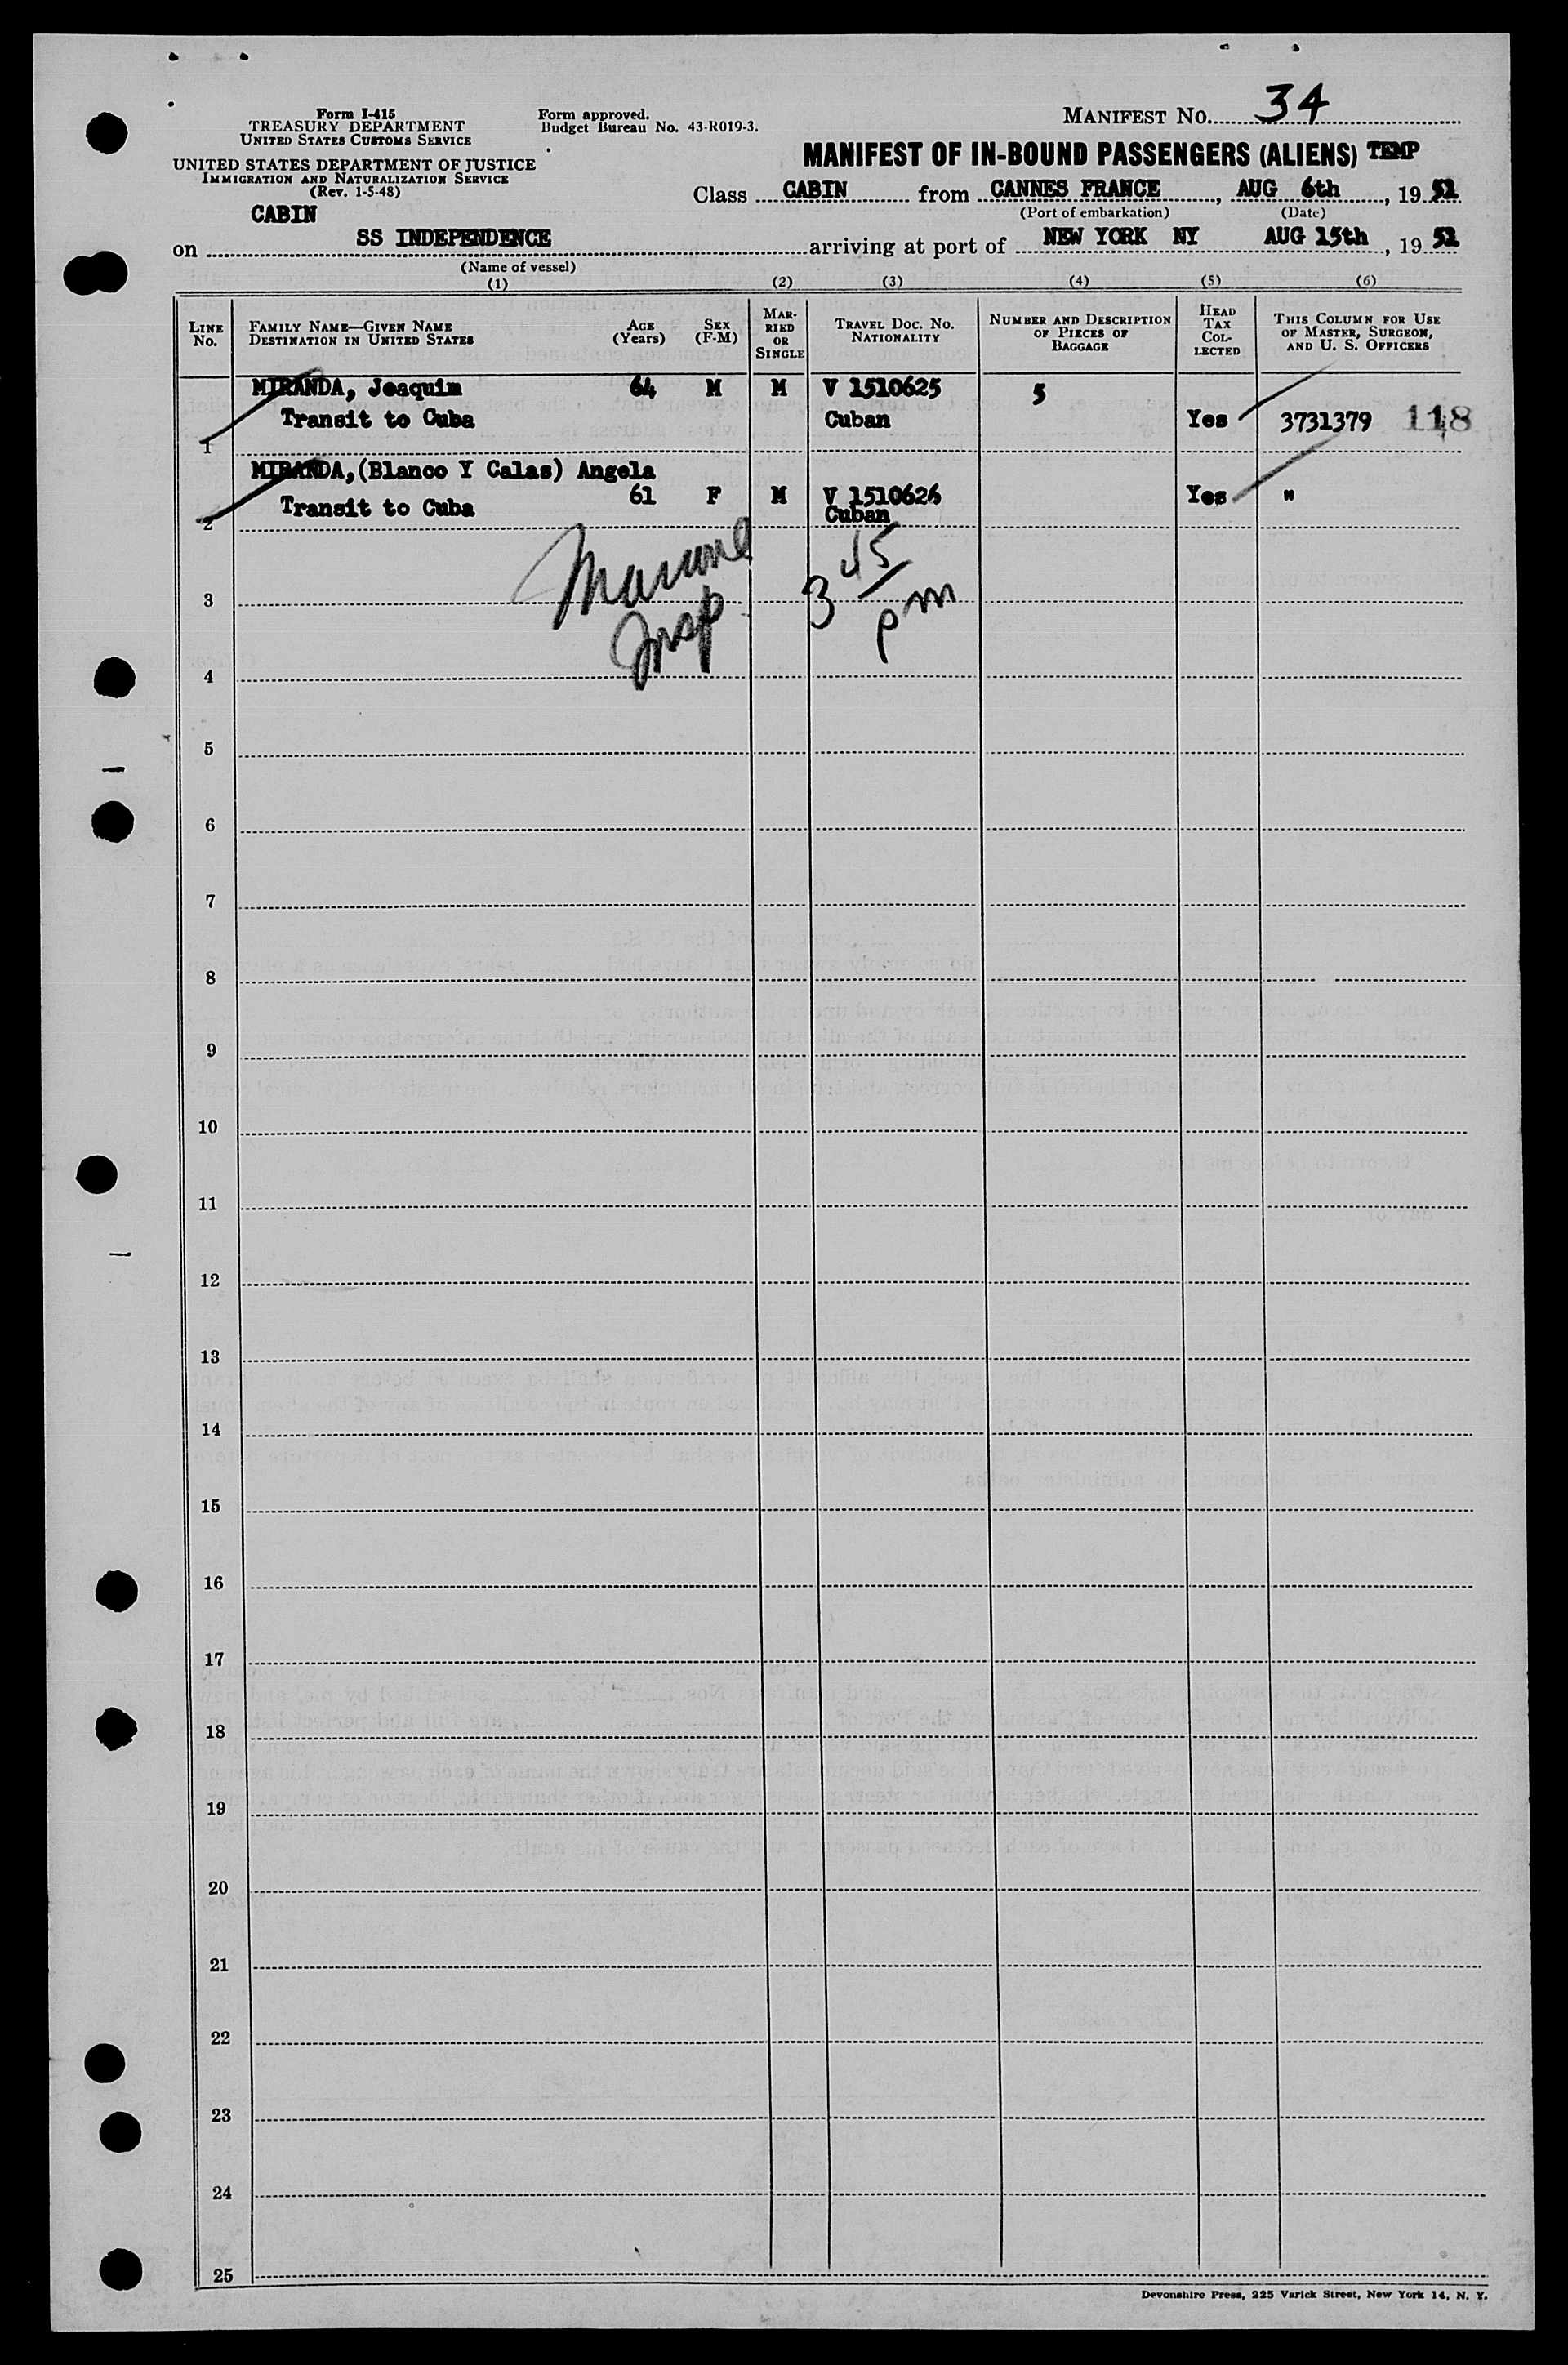 Form I-415
TREASURY DEPARTMENT
UNITED STATES CUSTOMS SERVICE
UNITED STATES DEPARTMENT OF JUSTICE
IMMIGRATION AND NATURALIZATION SERVICE
(Rev. 1-5-48)
Form approved.
Budget Bureau No. 43-R019-3.
MANIFEST NO. 34
MANIFEST OF IN-BOUND PASSENGERS (ALIENS) TEMP
Class CABIN from CANNES FRANCE, AUG 6th, 19 52
(Port of embarkation) (Date)
CABIN
on SS INDEPENDENCE arriving at port of NEW YORK NY AUG 15th, 19 52
(Name of vessel)
(1) (2) (3) (4) (5) (6)
LINE NO. FAMILY NAME—GIVEN NAME DESTINATION IN UNITED STATES AGE (Years) SEX (F-M) MARRIED OR SINGLE TRAVEL DOC. NO. NATIONALITY NUMBER AND DESCRIPTION OF PIECES OF BAGGAGE HEAD TAX COLLECTED THIS COLUMN FOR USE OF MASTER, SURGEON, AND U. S. OFFICERS
MIRANDA, Joaquim 64 M M V 1510625 5
1 Transit to Cuba Cuban Yes 3731379 118
MIRANDA,(Blanco Y Calas) Angela
61 F M V 1510626 Yes "
2 Transit to Cuba Cuban
3 45
Insp pm
3
4
5
6
7
8
9
10
11
12
13
14
15
16
17
18
19
20
21
22
23
24
25
Devonshire Press, 225 Varick Street, New York 14, N. Y.